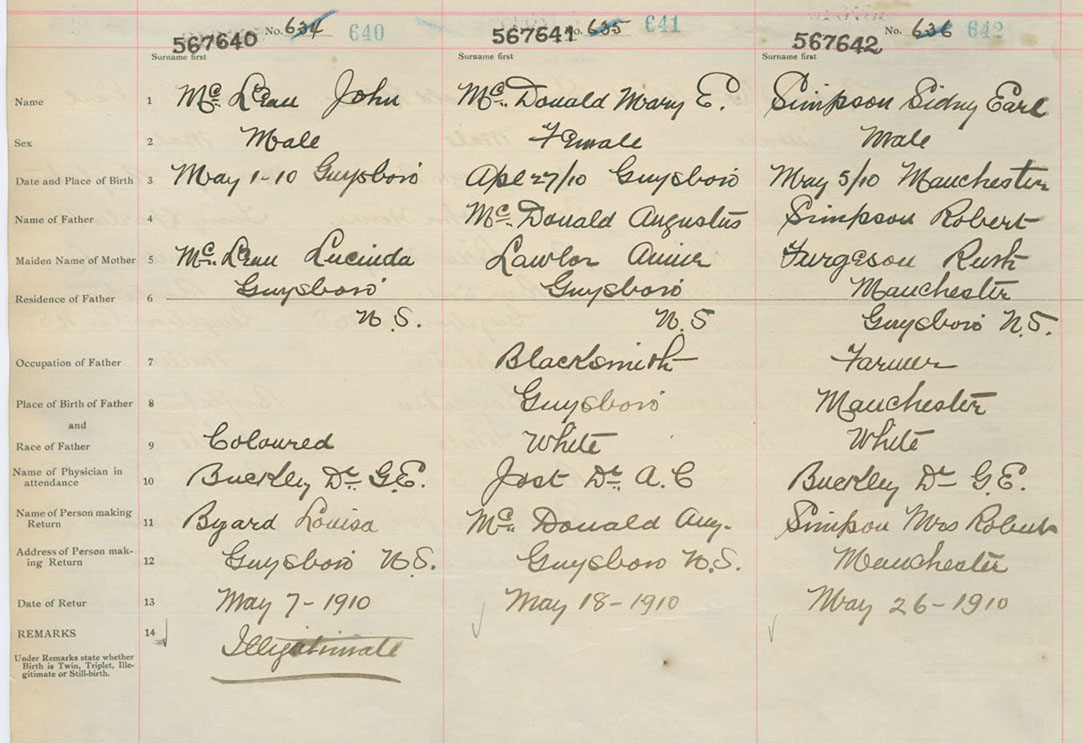 567640 No. 634 640 567641 No. 635 641 567642 No. 636 642
Surname first Surname first Surname first
Name 1 Mc. Lean John Mc. Donald Mary E. Simpson Sidny Earl
Sex 2 Male Female Male
Date and Place of Birth 3 May 1-10 Guysboro Apl 27/10 Guysboro May 5/10 Manchester
Name of Father 4 Mc. Donald Augustus Simpson Robert
Maiden Name of Mother 5 Mc. Lean Lucinda Lawlor Furgeson
Residence of Father 6 Guysboro Guysboro Manchester
N.S. N.S Guysboro N.S.
Occupation of Father 7 Blacksmith Farmer
Place of Birth of Father 8 Guysboro Manchester
and
Race of Father 9 Coloured White White
Name of Physician in
attendance 10 Buckley Dr. G.E. Jost Dr. A.C Buckley Dr G.E.
Name of Person making
Return 11 Byard Louisa Mc. Donald Aug. Simpson Mrs Robert
Address of Person mak-
ing Return 12 Guysboro N.S. Guysboro N.S. Manchester
Date of Retur 13 May 7-1910 May 18-1910 May 26-1910
REMARKS 14 Illegitimate
Under Remarks state whether
Birth is Twin, Triplet, Ille-
gitimate or Still-birth.